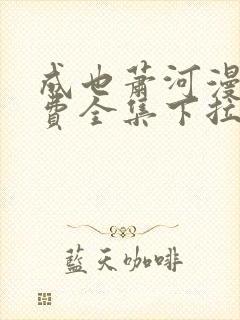 成也萧河漫
费全集下拉
藍天咖啡